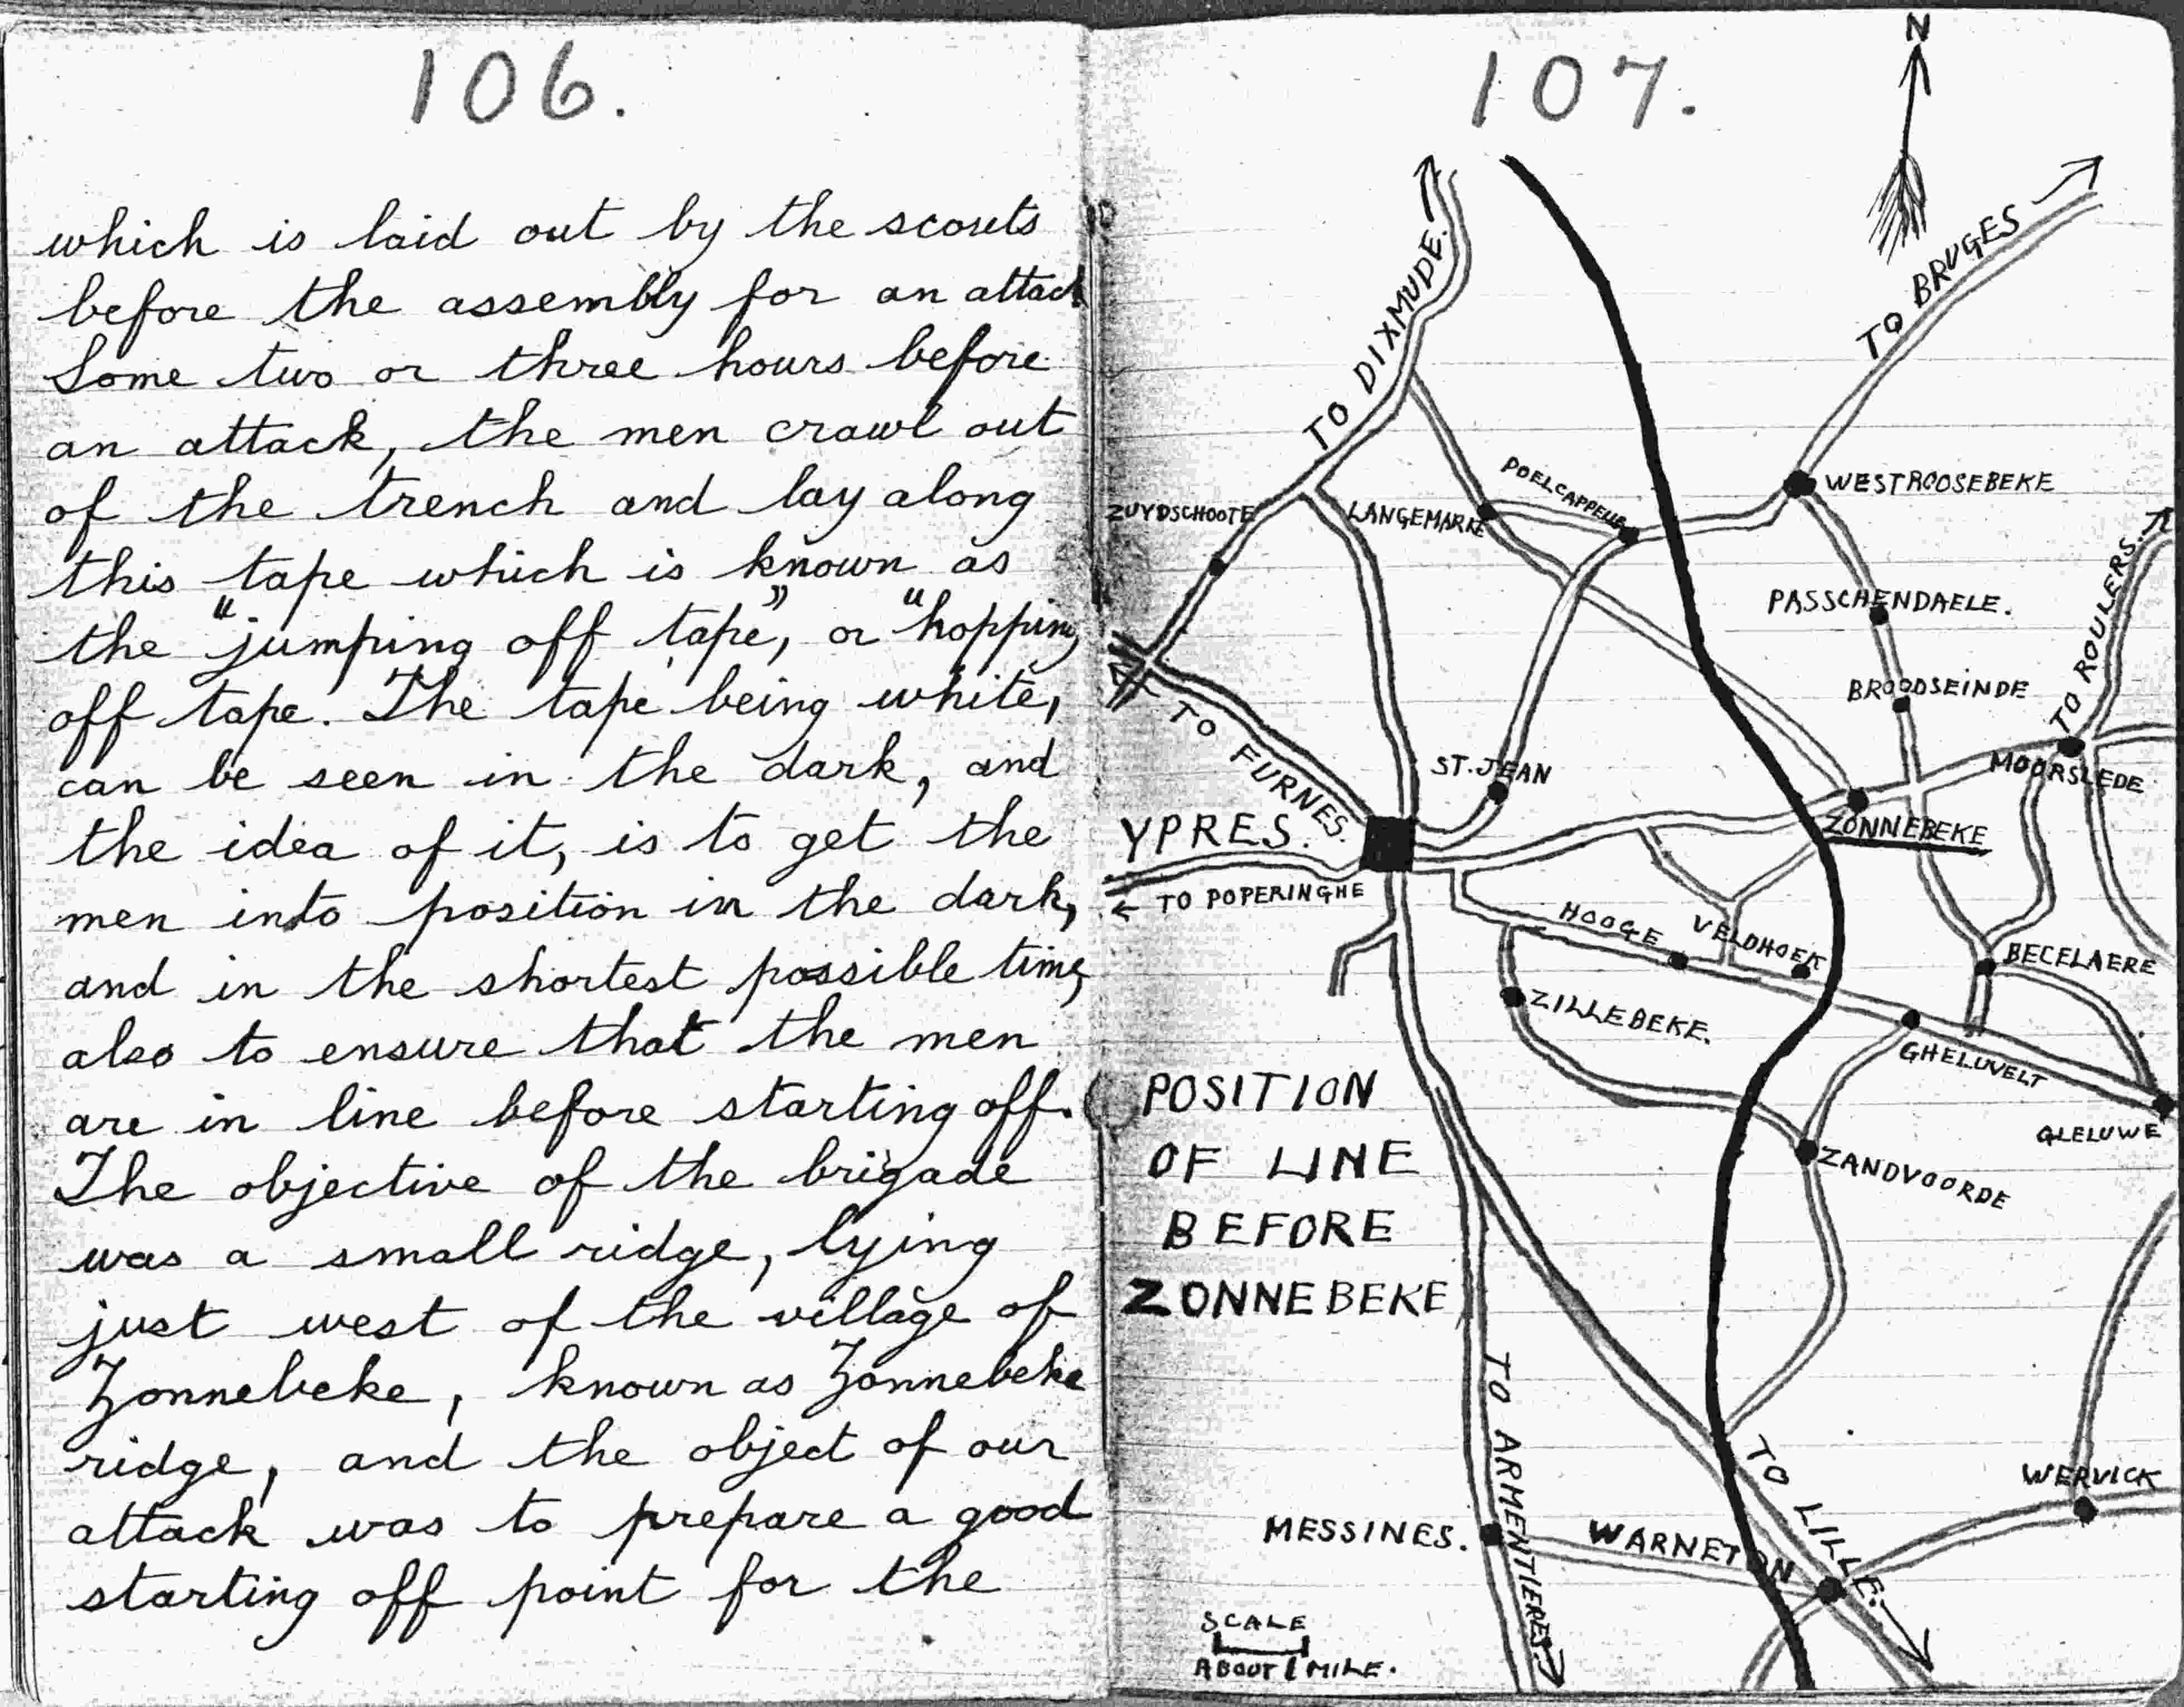 106.
which is laid out by the scouts
before the assembly for an attack
Some two or three hours before
an attack, the men crawl out
of the trench and lay along
this tape which is known as
the "jumping off tape", or "hopping
off tape. The tape being white,
can be seen in the dark, and
the idea of it, is to get the
men into position in the dark,
and in the shortest possible time,
also to ensure that the men
are in line before starting off.
The objective of the brigade
was a small ridge, lying
just west of the village of
Zonnebeke, known as Zonnebeke
ridge, and the object of our
attack was to prepare a good
starting off point for the
107.
N
TO DIXMUDE.
TO BRUGES
WESTROOSEBEKE
POELCAPPELLE
ZUYDSCHOOTE
LANGEMARKE
PASSCHENDAELE.
TO ROULERS.
BROODSEINDE
TO FURNES.
ST. JEAN
MOORSLEDE
YPRES.
ZONNEBEKE
TO POPERINGHE
HOOGE
VELDHOEK
BECELAERE
ZILLEBEKE.
GHELUVELT
GLELUWE
ZANDVOORDE
POSITION
OF LINE
BEFORE
ZONNEBEKE
TO ARMENTIERES
TO LILLE.
WERVICK
MESSINES.
WARNETON
SCALE
ABOUT 1 MILE.